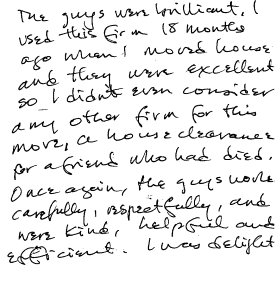 The guys were brilliant. I
used this firm 18 months
ago when I moved house
and they were excellent
so I didn't even consider
any other firm for this
move, a house clearance
for a friend who had died.
Once again, the guys work
carefully, respectfully, and
were kind, helpful and
efficient. I was delight